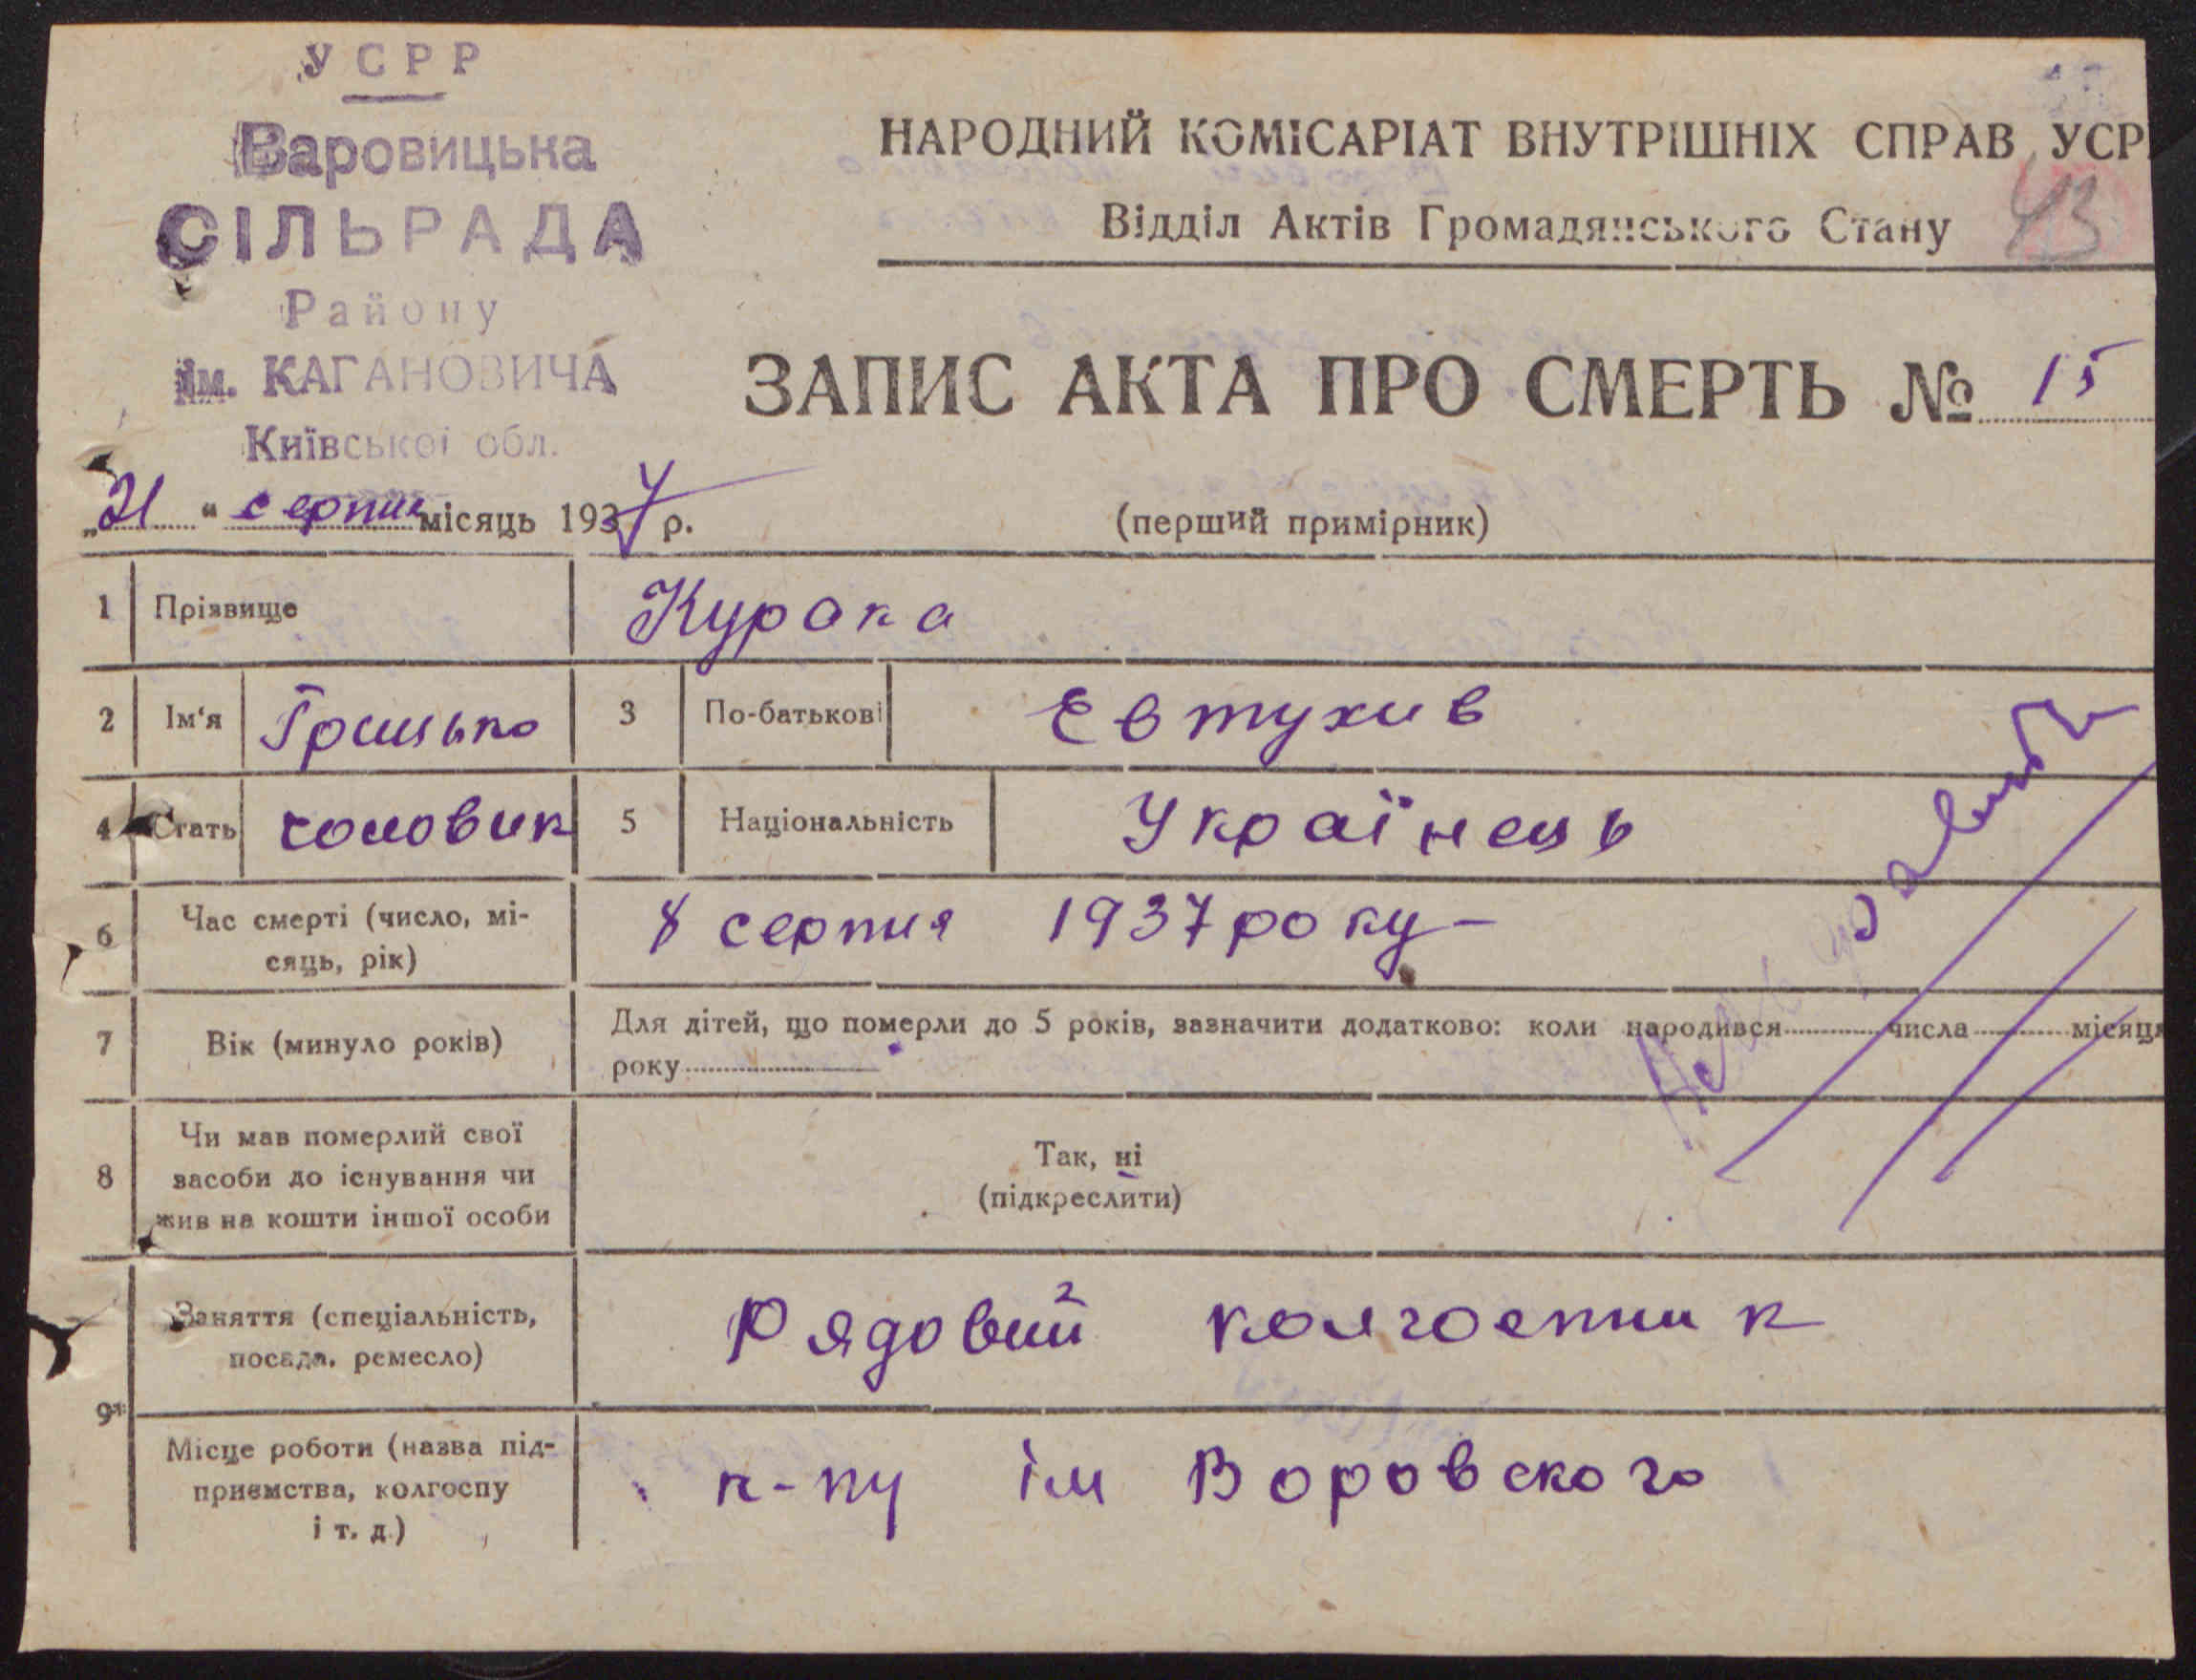 УСРР
Варовицька
СІЛЬРАДА
Району
ім. КАГАНОВИЧА
Київської обл.
НАРОДНИЙ КОМІСАРІАТ ВНУТРІШНІХ СПРАВ УСР
Відділ Актів Громадянського Стану
43
ЗАПИС АКТА ПРО СМЕРТЬ № 15
„21" серпня місяць 1937 р.
(перший примірник)
1 Прізвище Курака
2 Ім'я Грицько 3 По-батькові Евтухив
4 Стать чоловик 5 Національність Українець
6 Час смерті (число, мі-
сяць, рік) 8 серпня 1937 року -
7 Вік (минуло років) Для дітей, що померли до 5 років, зазначити додатково: коли народився числа місяця
року
8 Чи мав померлий свої
засоби до існування чи
жив на кошти іншої особи
Так, ні
(підкреслити)
9 Заняття (спеціальність,
посада, ремесло) Рядовий колгоспник
Місце роботи (назва під-
приємства, колгоспу
і т. д.) к-пу ім Воровского